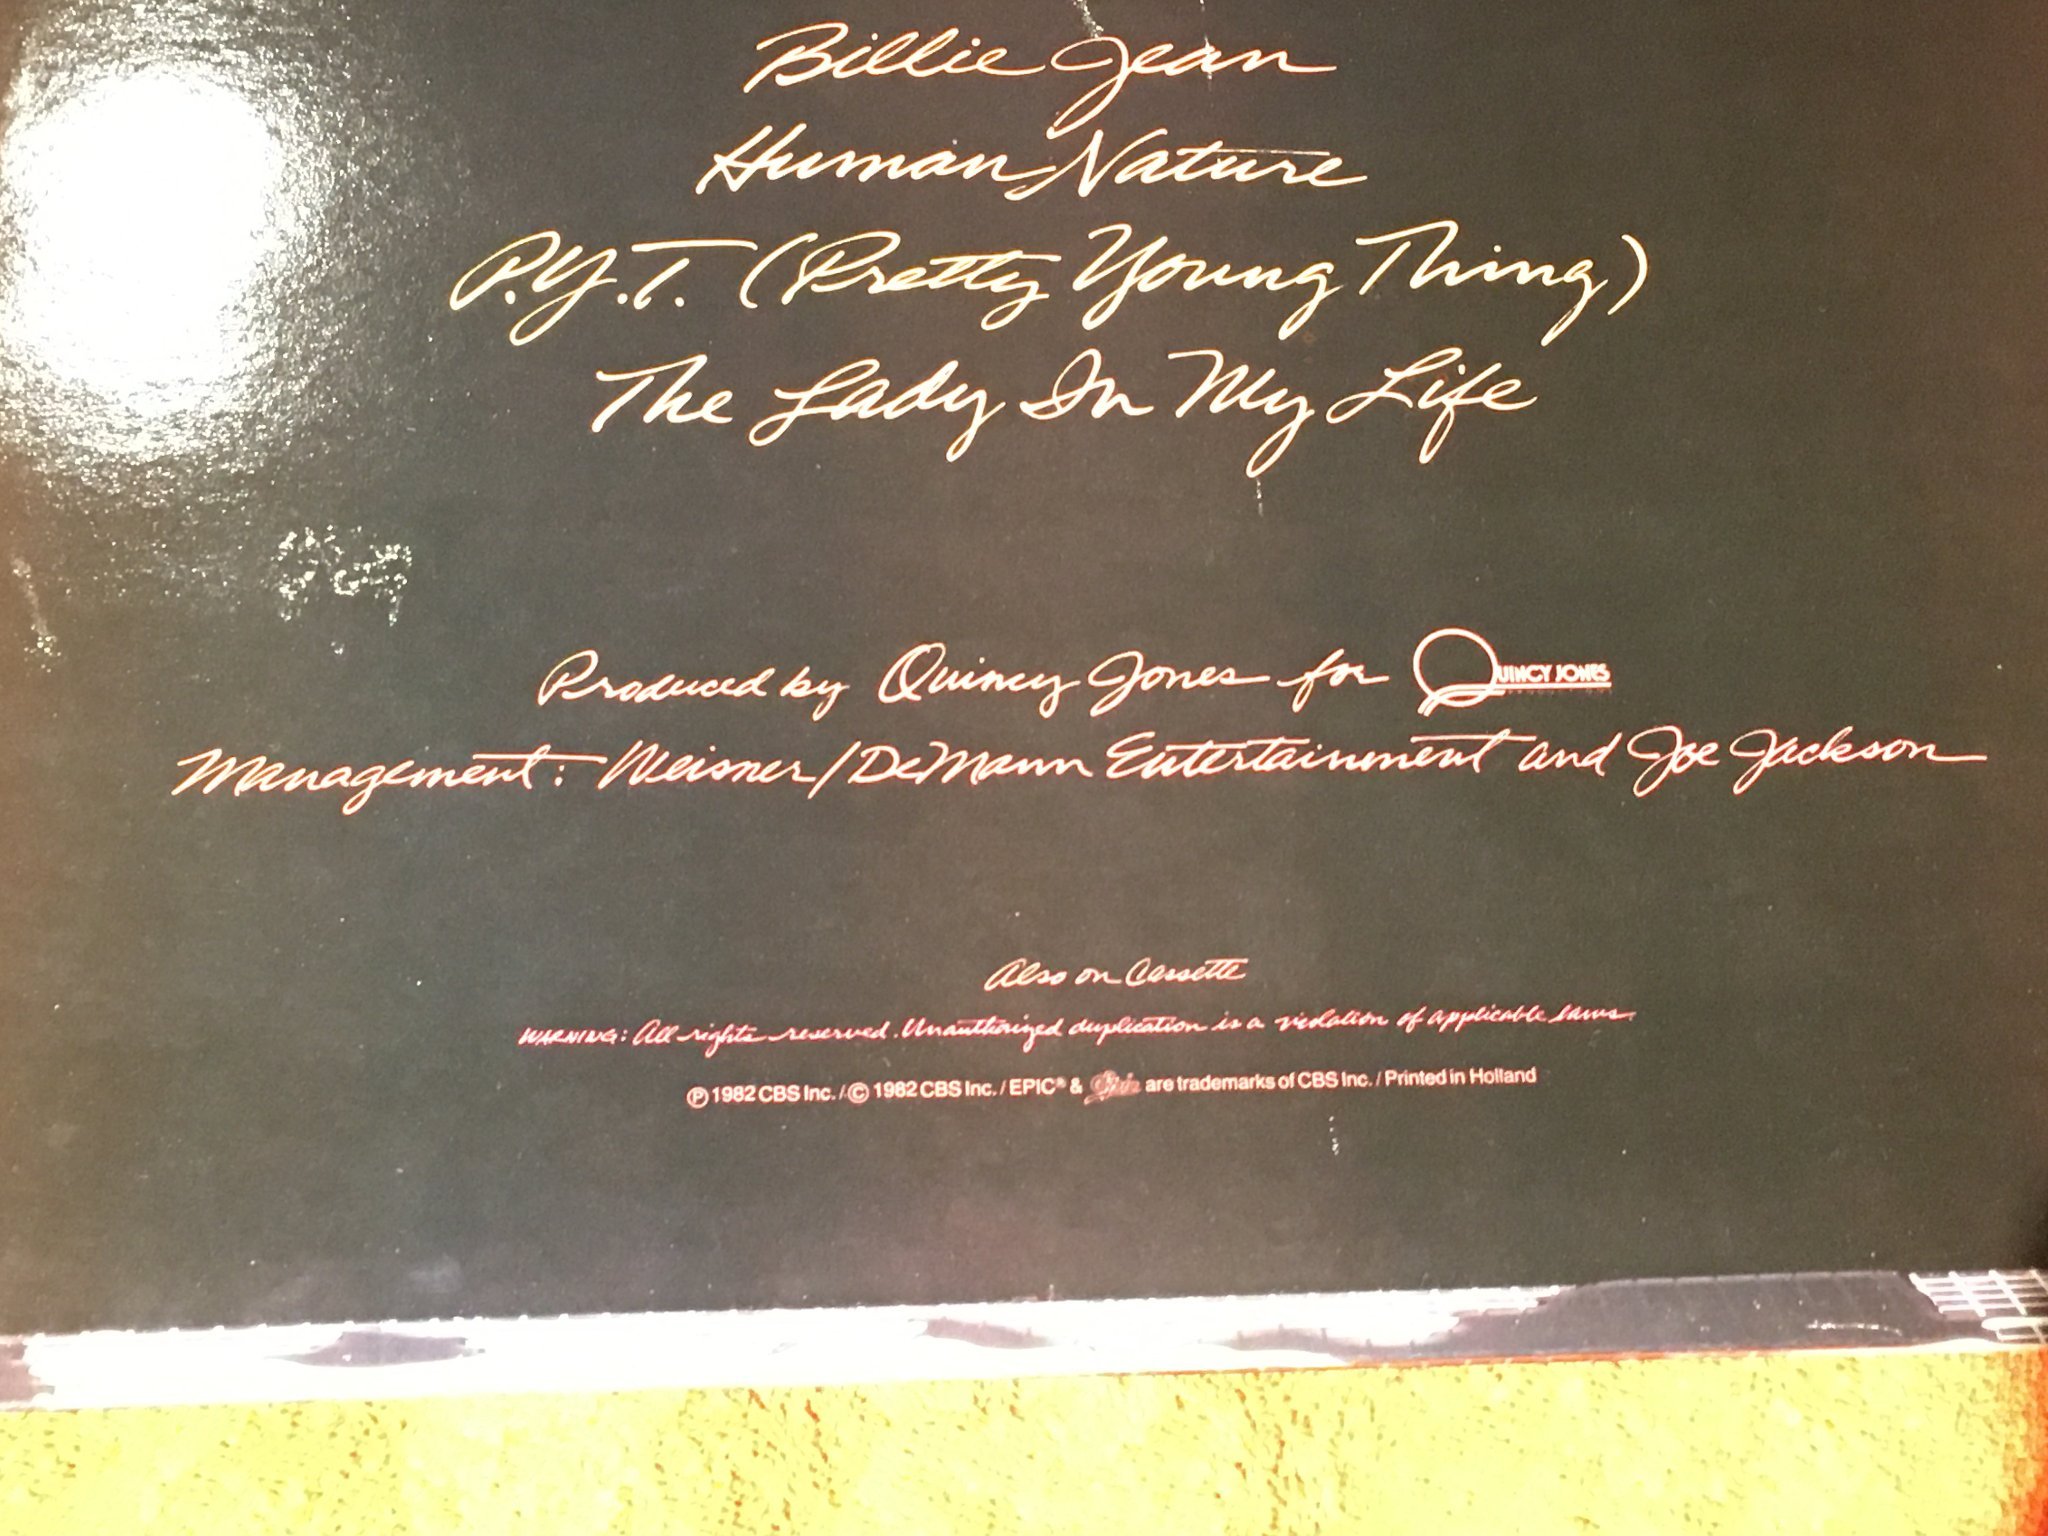 Billie Jean
Human Nature
P.Y.T. (Pretty Young Thing)
The Lady In My Life
Produced by Quincy Jones for QUINCY JONES
Management: Weisner/DeMann Entertainment and Joe Jackson
Also on Cassette
WARNING: All rights reserved. Unauthorized duplication is a violation of applicable laws.
℗ 1982 CBS Inc. / © 1982 CBS Inc. / EPIC® & are trademarks of CBS Inc. / Printed in Holland